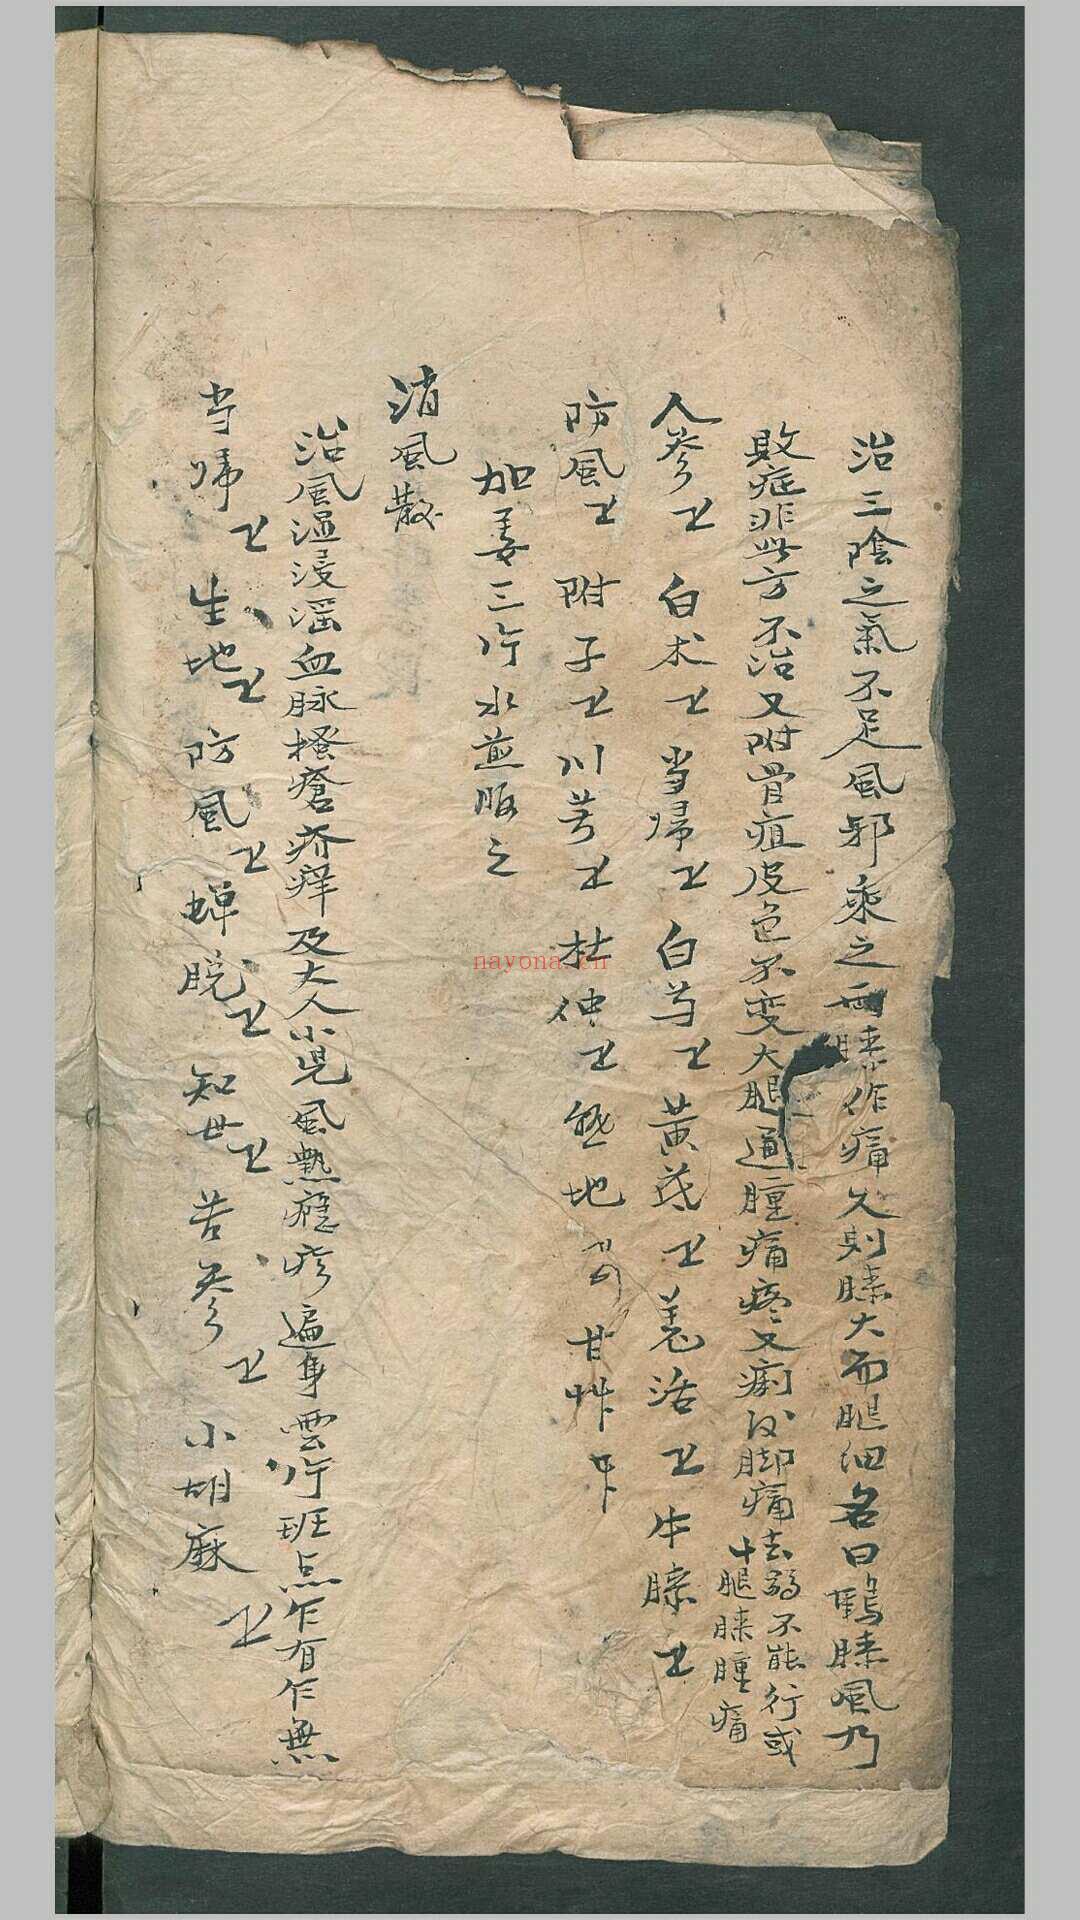 治三陰之氣不足風邪乘之兩膝作痛久則膝大而腿細名曰鶴膝風乃
敗症非此方不治又附骨疽皮色不变大腿通腫痛疼又痢後脚痛
去弱不能行或
十腿膝腫痛
人參 白术 当归 白芍 黄芪 羌活 牛膝
防風 附子 川芎 杜仲 熟地 甘艸
加姜三片水煎服之
消風散
治風温浸淫血脉搔瘡疥痒及大人小児風熱癮疹遍身雲片班点乍有乍無
当归 生地 防風 蝉脱 知母 苦參 小胡麻
nayona.cn